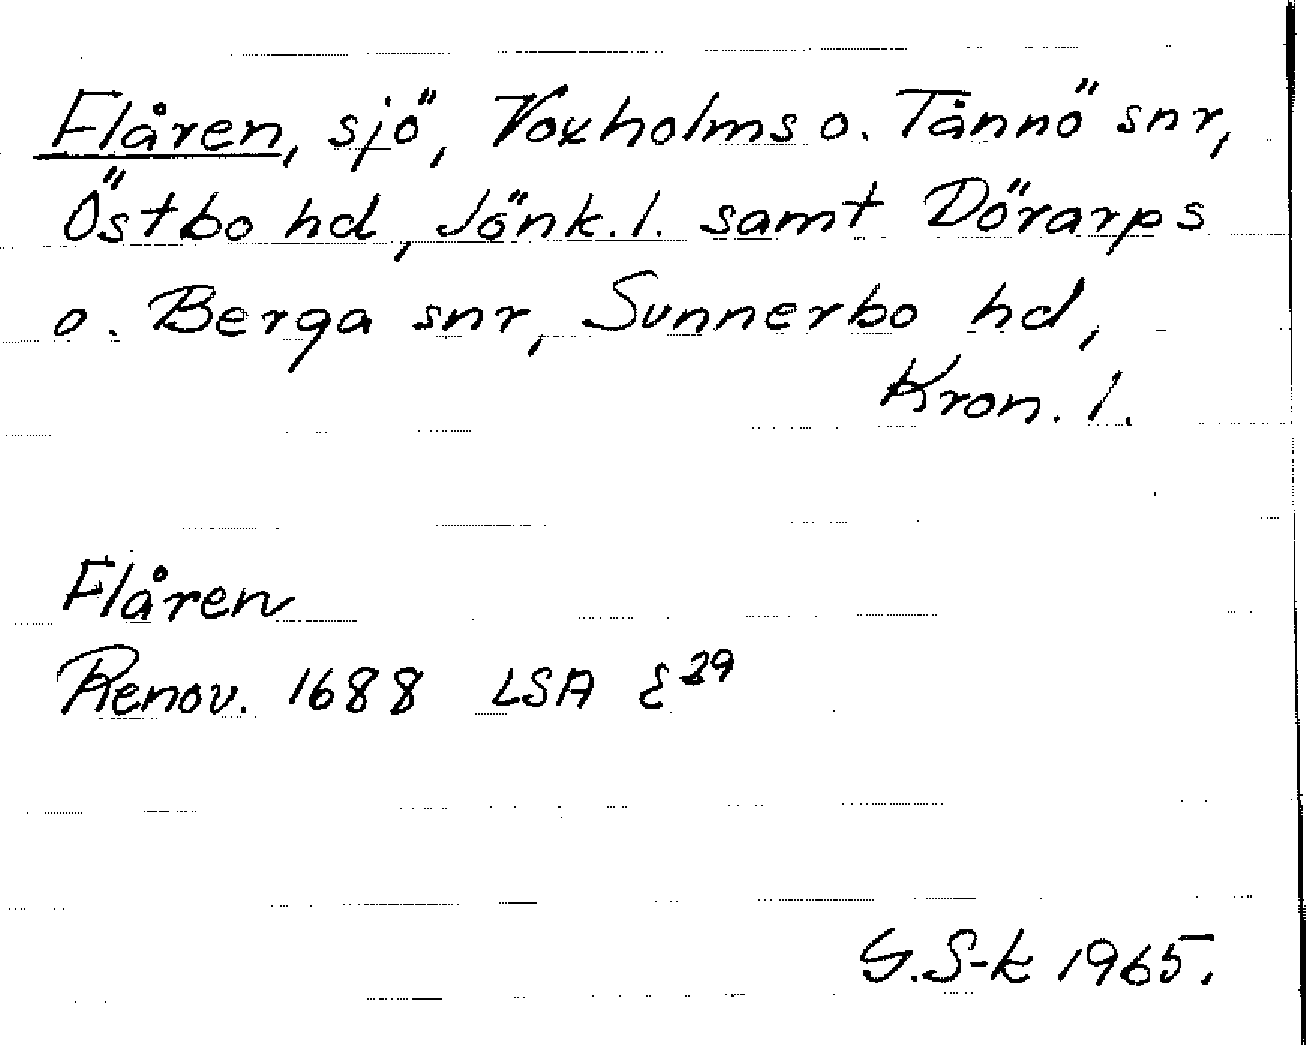 Flåren, sjö, Voxholms o. Tånnö snr,
Östbo hd, Jönk. l. samt Dörarps
o. Berga snr, Sunnerbo hd,
Kron. l.
Flåren
Renov. 1688 LSA E 29
G. S-k 1965.